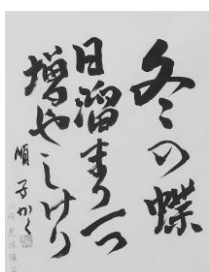 冬の蝶
日溜まり一つ
増やしけり
順子かく